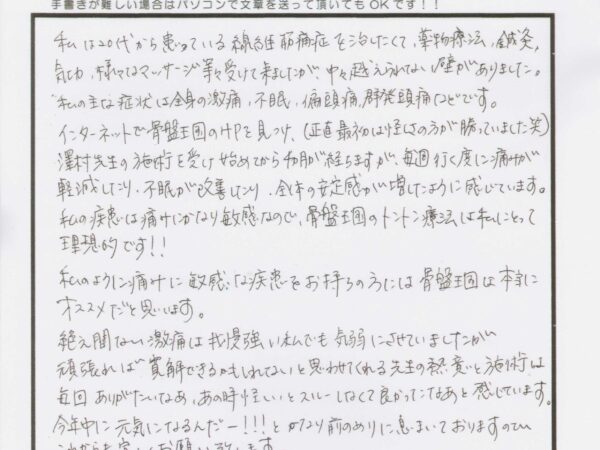 手書きが難しい場合はパソコンで文章を送って頂いてもOKです!!
私は20代から患っている線維筋痛症を治したくて、薬物療法、鍼灸、
気功、様々なマッサージ等々受けて来ましたが、中々越えられない壁がありました。
私の主な症状は全身の激痛、不眠、偏頭痛、群発頭痛などです。
インターネットで骨盤王国のHPを見つけ、(正直最初は怪しさの方が勝っていました笑)
澤村先生の施術を受け始めてから約 月が経ちますが、毎週行く度に痛みが
軽減したり、不眠が改善したり、全体の安定感が増したように感じています。
私の疾患は痛みにかなり敏感なので、骨盤王国のトントン療法は私にとって
理想的です!!
私のように痛みに敏感な疾患をお持ちの方には骨盤王国は本当に
オススメだと思います。
絶え間ない激痛は我慢強い私でも気弱にさせていましたが
頑張れば寛解できるかもしれないと思わせてくれる先生の熱意と施術は
毎回ありがたいなぁ、あの時怪しいとスルーしなくて良かったなぁと感じています。
今年中に元気になるんだー!!!とかなり前のめりに息まいておりますので
これからも宜しくお願い致します